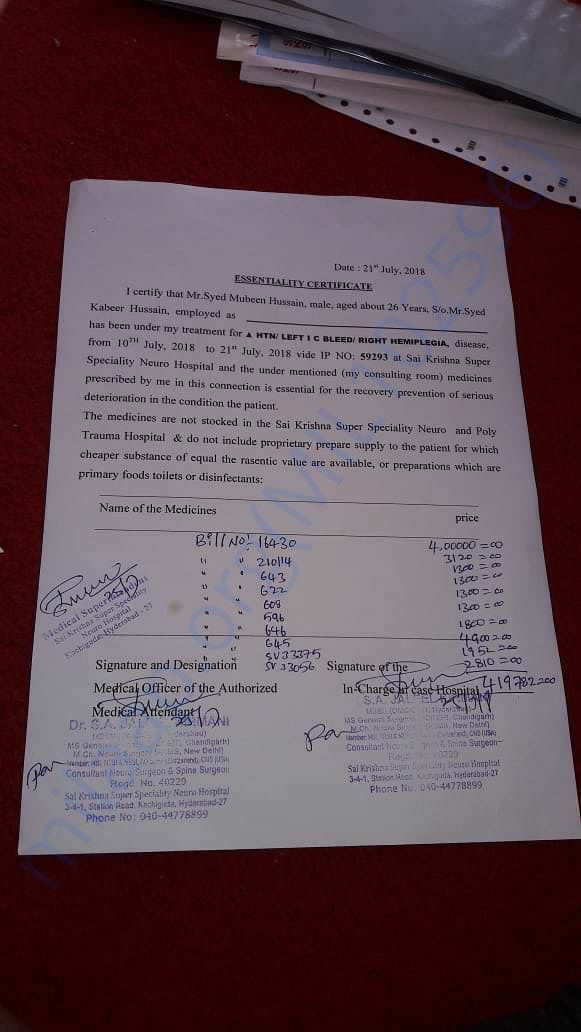 Date : 21st July, 2018
ESSENTIALITY CERTIFICATE
I certify that Mr.Syed Mubeen Hussain, male, aged about 26 Years, S/o.Mr.Syed
Kabeer Hussain, employed as
has been under my treatment for ▲ HTN/ LEFT I C BLEED/ RIGHT HEMIPLEGIA, disease,
from 10TH July, 2018 to 21st July, 2018 vide IP NO: 59293 at Sai Krishna Super
Speciality Neuro Hospital and the under mentioned (my consulting room) medicines
prescribed by me in this connection is essential for the recovery prevention of serious
deterioration in the condition the patient.
The medicines are not stocked in the Sai Krishna Super Speciality Neuro and Poly
Trauma Hospital & do not include proprietary prepare supply to the patient for which
cheaper substance of equal the rasentic value are available, or preparations which are
primary foods toilets or disinfectants:
Name of the Medicines price
Bill No:- 16430 4,00000=00
" " 210114 3120=00
" " 643 1300=00
" " 622 1300=00
" " 608 1300=00
" " 596 1300=00
" " 646 1800=00
" " 645 4900=00
SV33375 1952=00
SV33056 2810=00
419782=00
Medical Superintendent
Sai Krishna Super Speciality
Neuro Hospital
Kachiguda, Hyderabad - 27
Signature and Designation Signature of the
Medical Officer of the Authorized In-Charge in case Hospital
Medical Attendant
Dr. S.A. JAL
MS General Chandigarh)
M.Ch. Neuro Surgery New Delhi)
Consultant Neuro Surgeon & Spine Surgeon
Regd. No. 40229
Sai Krishna Super Speciality Neuro Hospital
3-4-1, Station Road, Kachiguda, Hyderabad-27
Phone No: 040-44778899
S.A. JAL
MS General Surgery Chandigarh)
M.Ch. Neuro New Delhi)
Consultant Neuro Surgeon & Spine Surgeon
Regd. No. 40229
Sai Krishna Super Speciality Neuro Hospital
3-4-1, Station Road, Kachiguda, Hyderabad-27
Phone No: 040-44778899